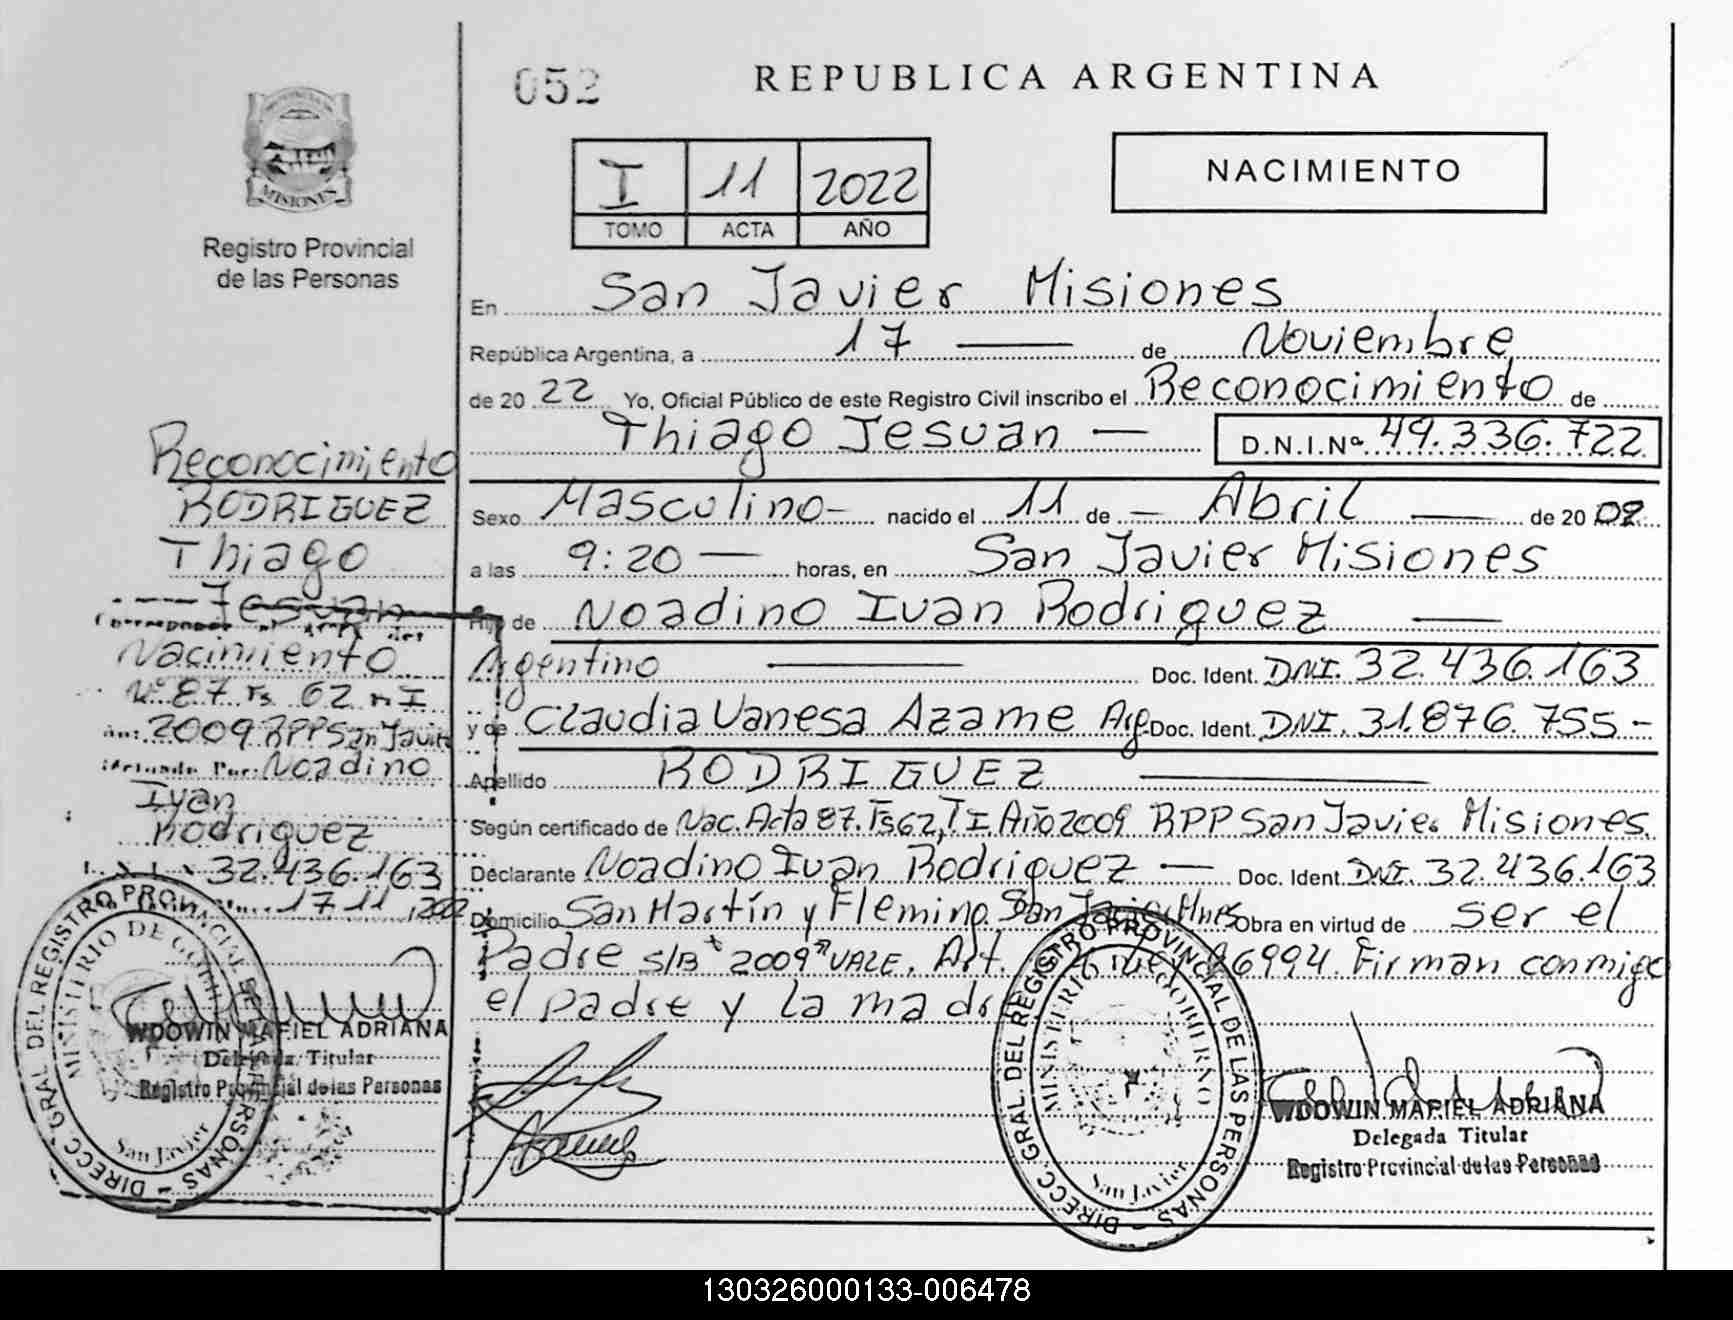 052
REPUBLICA ARGENTINA
I 11 2022
TOMO ACTA AÑO
NACIMIENTO
MISIONES
Registro Provincial
de las Personas
En San Javier Misiones
República Argentina, a 17 de Noviembre
de 20 22 Yo, Oficial Público de este Registro Civil inscribo el Reconocimiento de
Thiago Jesuan — D.N.I.Nº 49.336.722
Sexo Masculino- nacido el 11 de — Abril — de 20 09
a las 9:20 — horas, en San Javier Misiones
Hijo de Noadino Ivan Rodriguez —
Argentino — Doc. Ident. DNI. 32.436.163
y de Claudia Vanesa Azame Arg. Doc. Ident. DNI. 31.876.755-
Apellido RODRIGUEZ —
Según certificado de Nac. Acta 87. Fs 62, T I. Año 2009 RPP San Javier Misiones.
Declarante Noadino Ivan Rodriguez — Doc. Ident. DNI. 32.436.163
Domicilio San Martín y Fleming. San Javier Mnes Obra en virtud de ser el
Padre S/B "2009" VALE. Art. 26994. Firman conmigo
el padre y la madre
Reconocimiento
RODRIGUEZ
Thiago
Jesuan
Nacimiento
Nº 87. Fs 62
2009 RPP San Javier
Por: Noadino
Ivan
Rodriguez
32.436.163
17.11
DIRECC. GRAL. DEL REGISTRO PROVINCIAL DE LAS PERSONAS
MINISTERIO DE GOBIERNO
San Javier
WDOWIN MARIEL ADRIANA
Delegada Titular
Registro Provincial de las Personas
DIRECC. GRAL. DEL REGISTRO PROVINCIAL DE LAS PERSONAS
MINISTERIO DE GOBIERNO
San Javier
WDOWIN MARIEL ADRIANA
Delegada Titular
Registro Provincial de las Personas
130326000133-006478